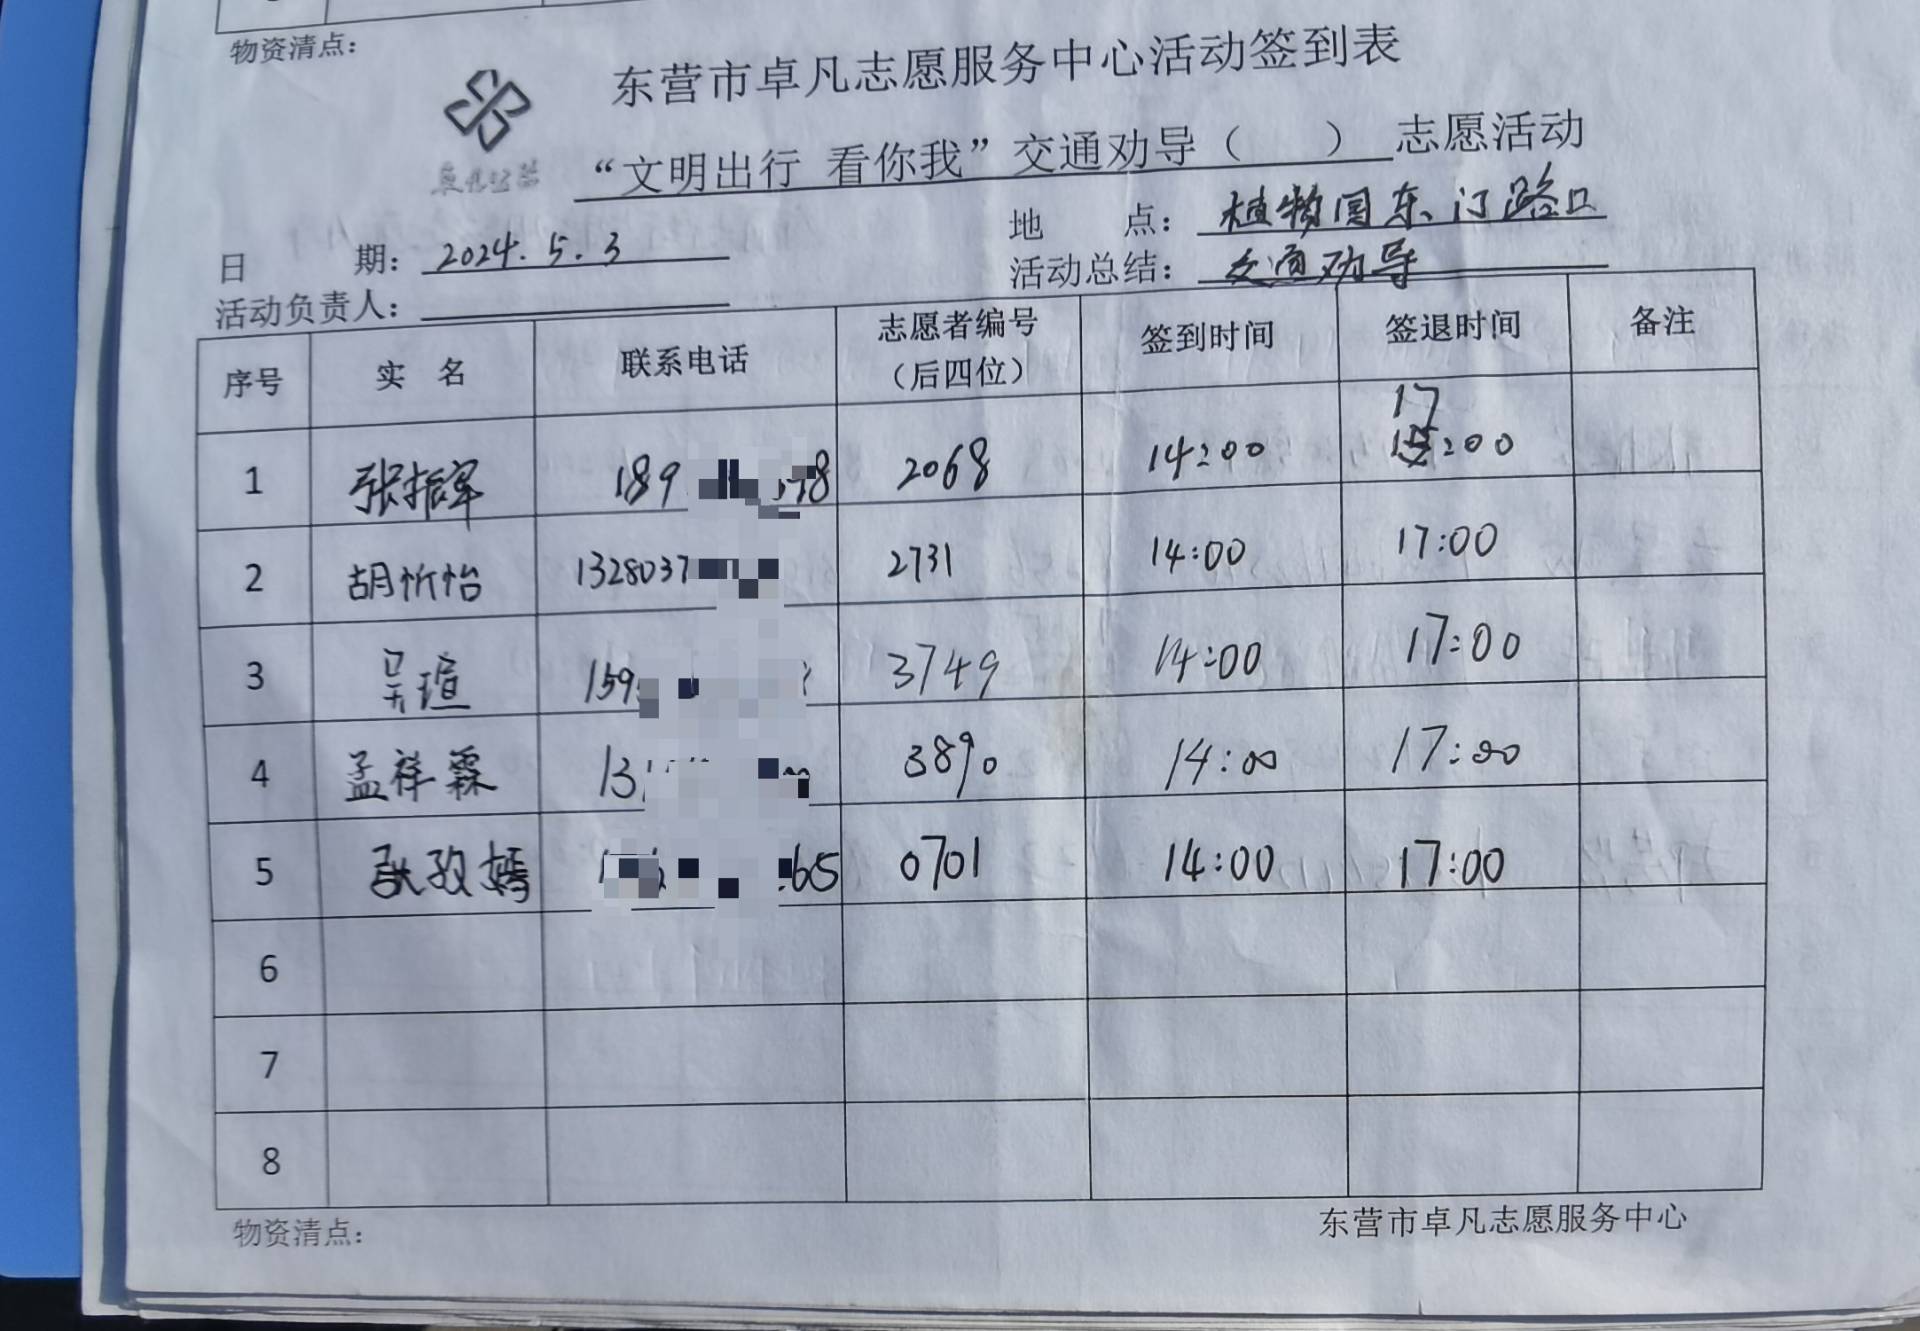 物资清点：
东营市卓凡志愿服务中心活动签到表
“文明出行 看你我”交通劝导（ ） 志愿活动
地 点： 植物园东门路口
日 期： 2024.5.3
活动总结： 交通劝导
活动负责人：
序号 实 名 联系电话 志愿者编号（后四位） 签到时间 签退时间 备注
17
1 张振军 189 8 2068 14:00 :00
2 胡忻怡 1328037 2731 14:00 17:00
3 吴瑄 159 3749 14:00 17:00
4 孟祥霖 13 3890 14:00 17:00
5 孜嫣 65 0701 14:00 17:00
6
7
8
物资清点：
东营市卓凡志愿服务中心